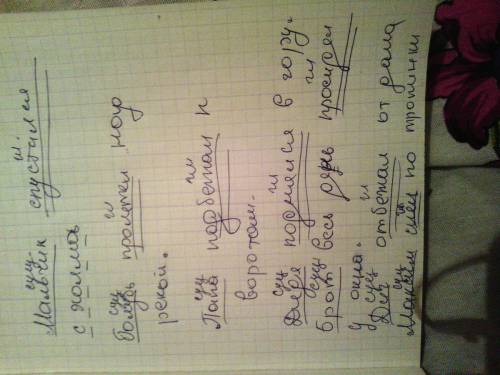 сущ. гл.
Мальчик спустился
с холма
сущ гл
Голубь пролетел над
рекой.
сущ гл
Папа подбежал к
воротам.
сущ гл
Дядя поднялся в гору.
сущ гл
Брат весь день просидел
у окна.
сущ гл
отбежал от дома
сущ гл
Максим шел по тропинки